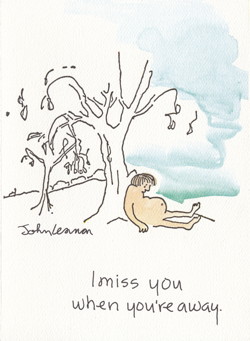 John Lennon
I miss you
when you're away.